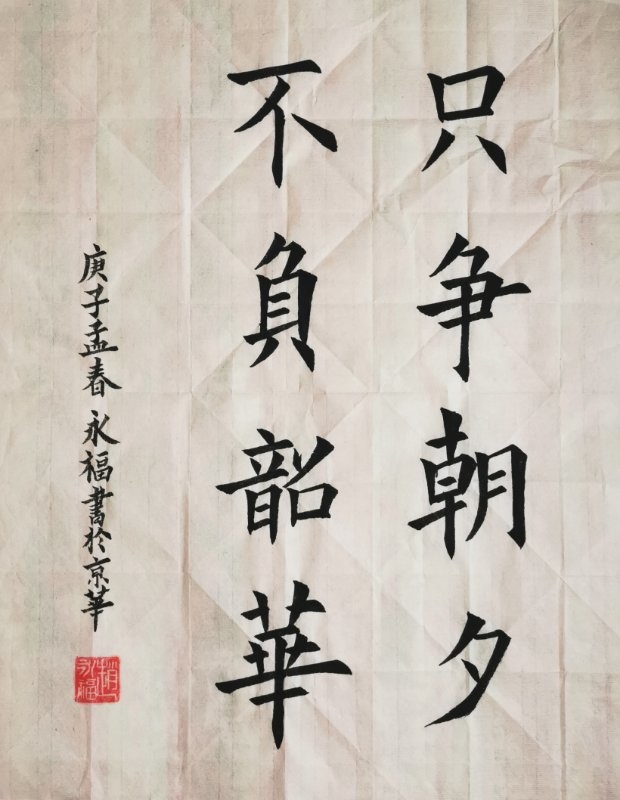 只争朝夕
不負韶華
庚子孟春 永福書於京華
趙永福